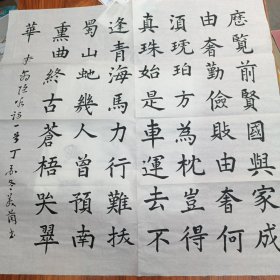 歷覽前賢國與家成
由奢勤儉敗由奢何
須琥珀方為枕豈得
真珠始是車運去不
逢青海馬力行難拔
蜀山虵幾人曾預南
薰曲終古蒼梧哭翠
華
詩一首丁亥冬美蘭書